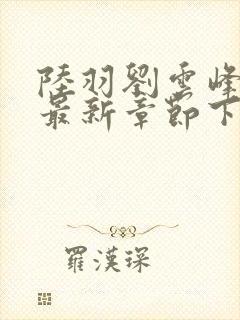 陸羽劉雲峰
最新章節下
羅漢琛